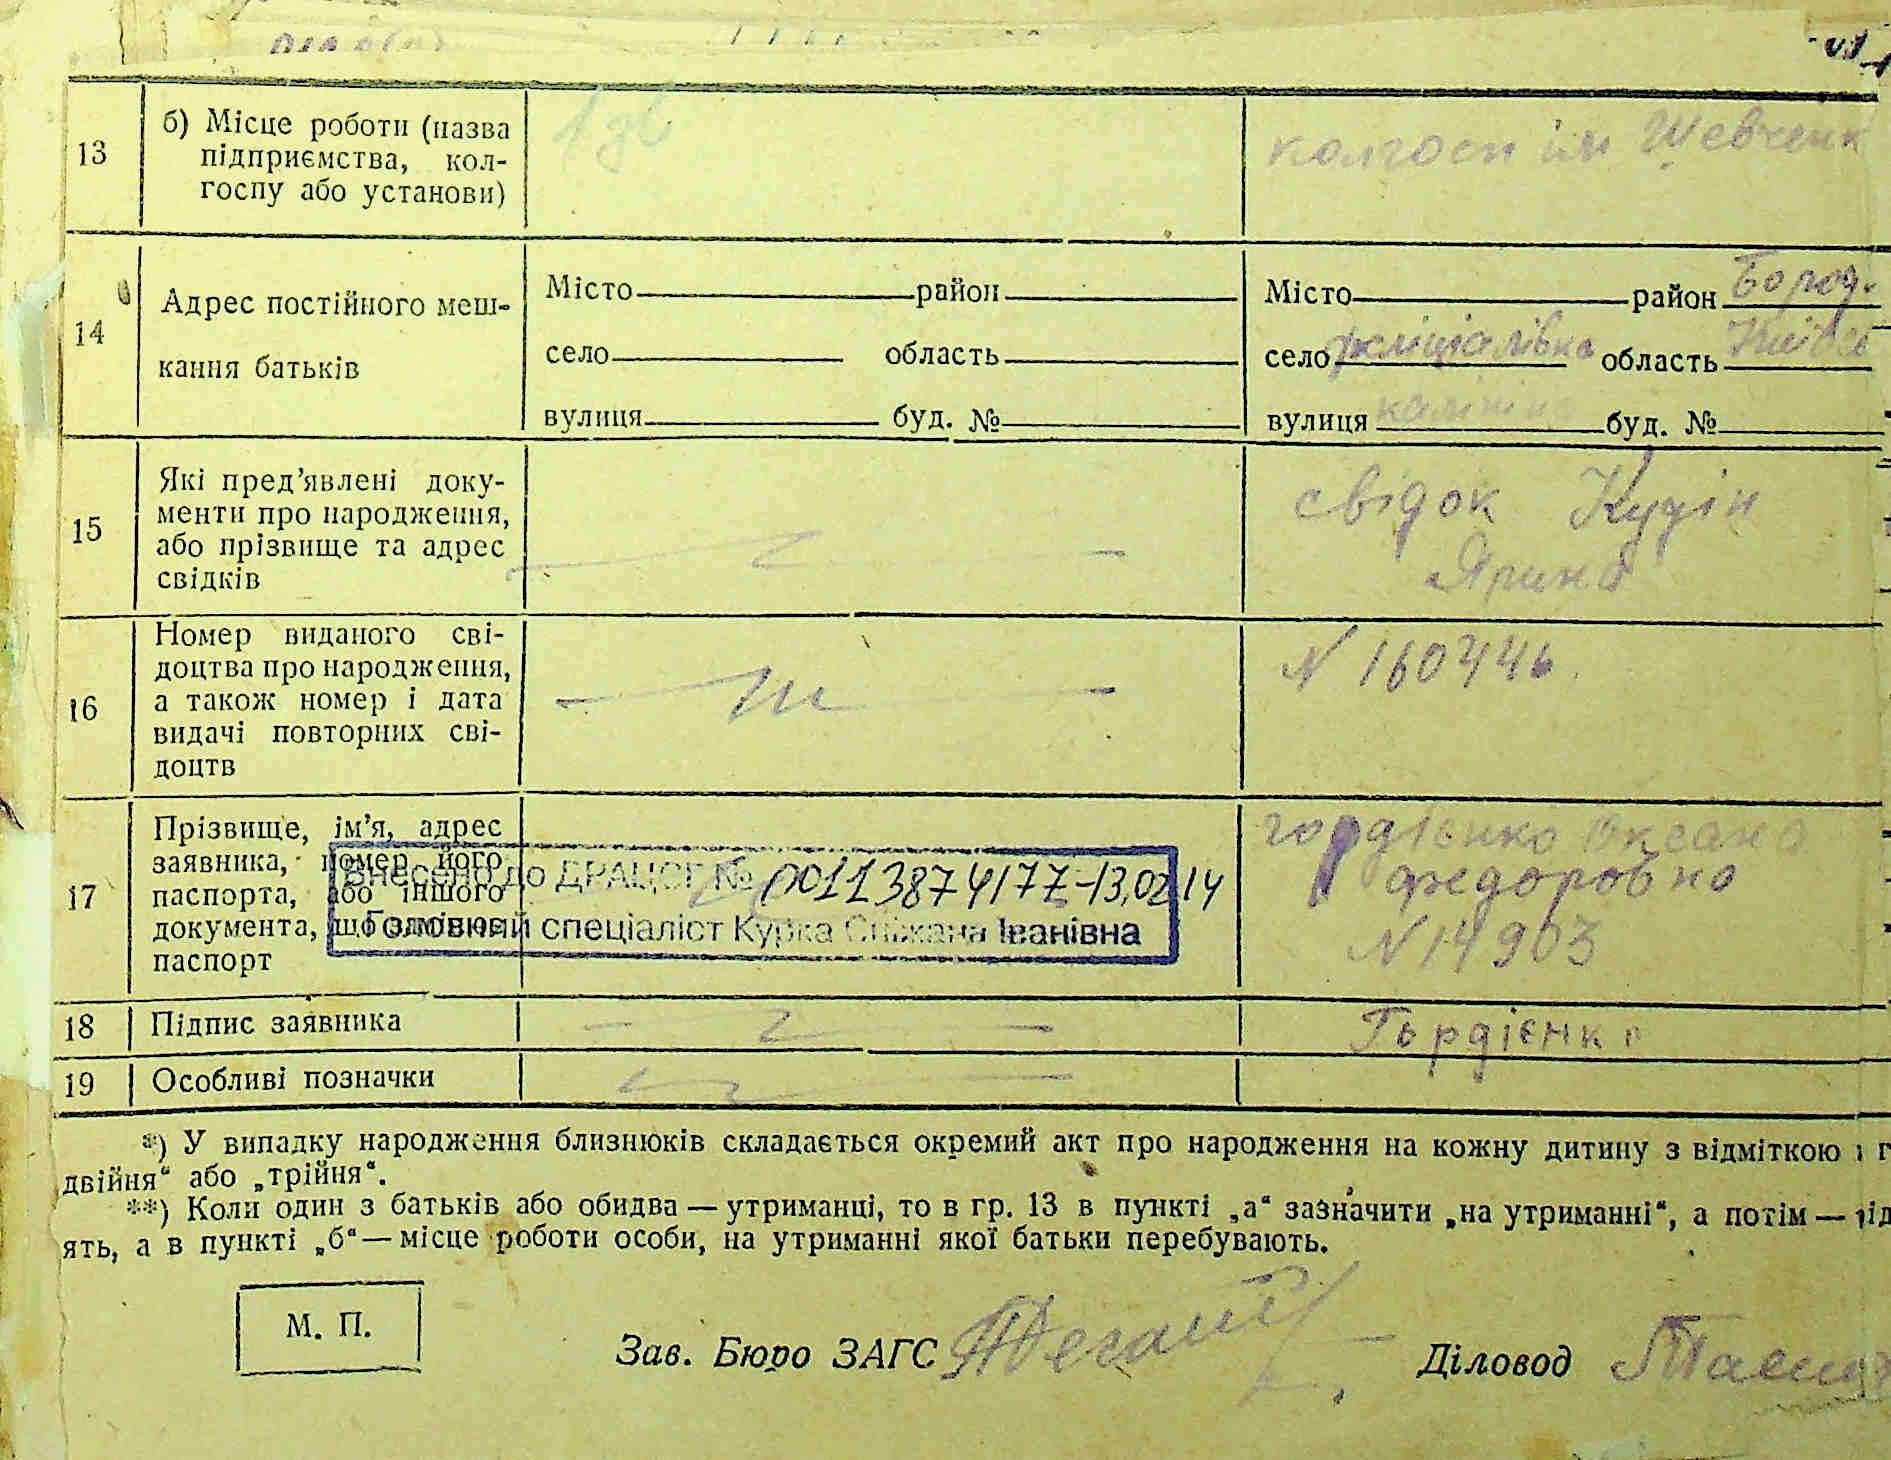 13
б) Місце роботи (назва
підприємства, кол-
госпу або установи)
колгосп ім Шевченк
14
Адрес постійного меш-
кання батьків
Місто район
село область
вулиця буд. №
Місто район Бород.
село область
вулиця калініна буд. №
15
Які пред’явлені доку-
менти про народження,
або прізвище та адрес
свідків
свідок Кудін
Ярина
16
Номер виданого сві-
доцтва про народження,
а також номер і дата
видачі повторних сві-
доцтв
N 160446.
17
Прізвище, ім’я, адрес
заявника, номер його
паспорта, або іншого
документа, що
паспорт
Внесено до ДРАЦСГ № 00113874177-13,02,14
Головний спеціаліст Курка Сніжана Іванівна
гордієнко Оксана
федоровна
N 14903
18
Підпис заявника
Гордієнко
19
Особливі позначки
*) У випадку народження близнюків складається окремий акт про народження на кожну дитину з відміткою
двійня“ або „трійня“.
**) Коли один з батьків або обидва — утриманці, то в гр. 13 в пункті „а“ зазначити „на утриманні“, а потім —
ять, а в пункті „б“ — місце роботи особи, на утриманні якої батьки перебувають.
М. П.
Зав. Бюро ЗАГС
Діловод